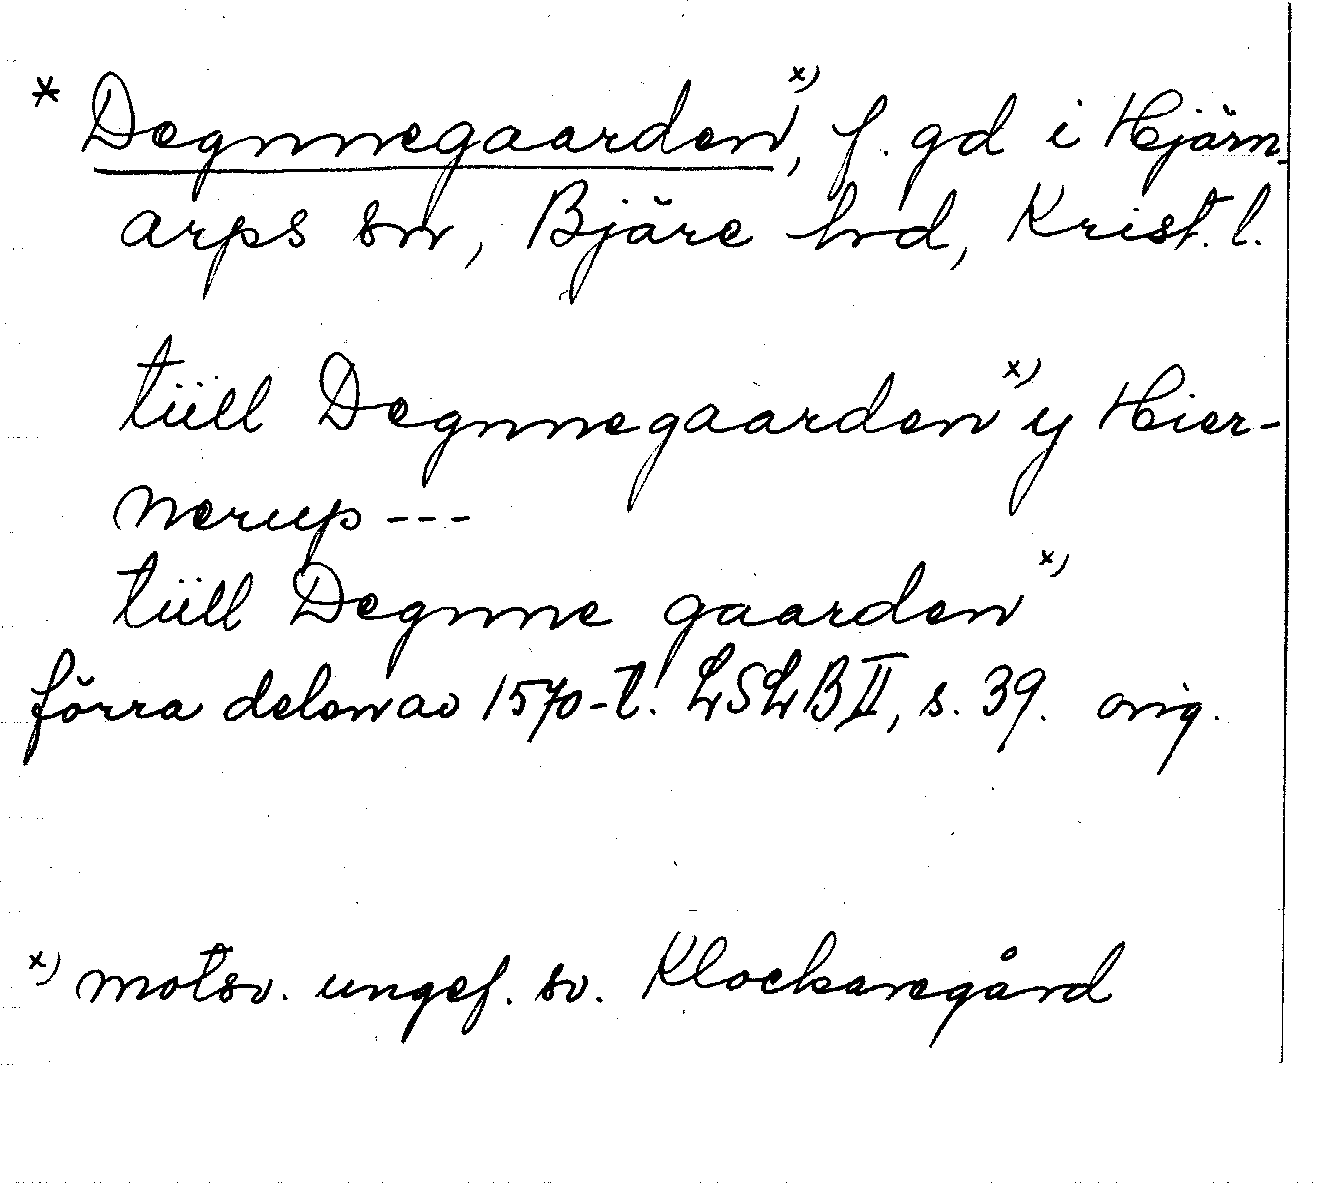 * Degnnegaarden x), f. gd i Hjärn-
arps sn, Bjäre hd, Krist. l.
tüll Degnnegaarden x) y Hier-
nerup ---
tüll Degnne gaarden x)
förra delen av 1570-t. LSLB II, s. 39. orig.
x) motsv. ungef. sv. Klockaregård